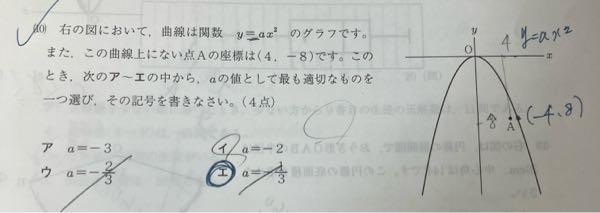 (10) 右の図において，曲線は関数 y＝ax² のグラフです。
また，この曲線上にない点Aの座標は(4，−8)です。この
とき，次のア〜エの中から，aの値として最も適切なものを
一つ選び，その記号を書きなさい。(4点)
ア a＝−3
イ a＝−2
ウ a＝−2/3
エ a＝−1/3
y
y=ax²
4
O
x
8
A
(-4,8)